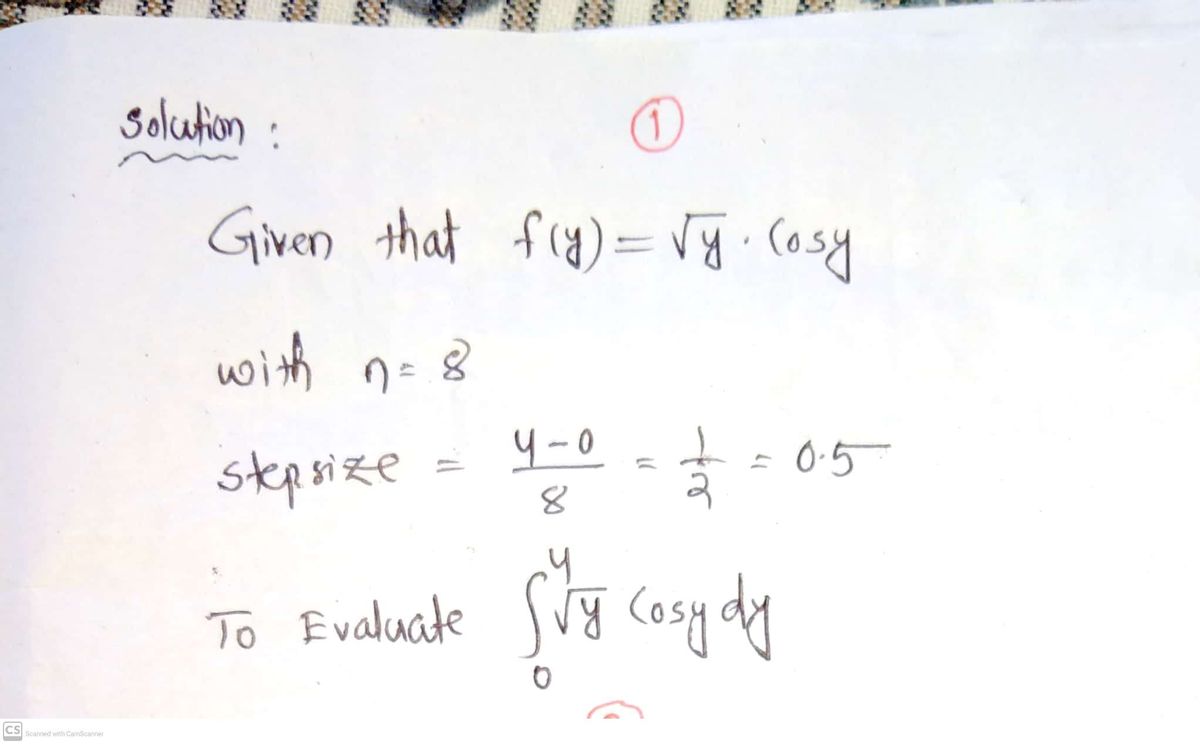 Solution :
①
Given that f(y) = √y · Cosy
with n = 8
stepsize = 4-0/8 = 1/2 = 0.5
To Evaluate ∫₀⁴ √y Cosy dy
CS Scanned with CamScanner